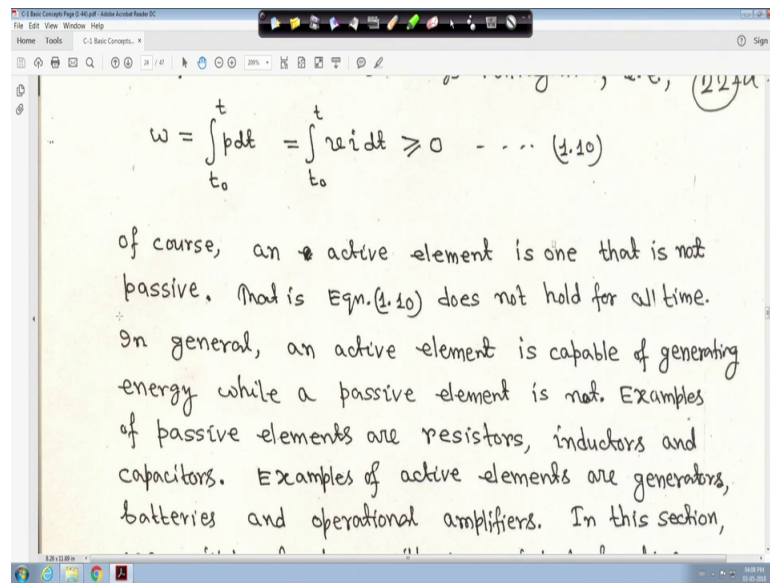 C-1 Basic Concepts Page (1-44).pdf - Adobe Acrobat Reader DC
File Edit View Window Help
Home Tools C-1 Basic Concepts... × Sign
28 / 47 200%
i.e, 22
w = ∫ₜ₀ᵗ pdt = ∫ₜ₀ᵗ vi dt ⩾ 0 - - - - (1.10)
of course, an active element is one that is not
passive. That is Eqn.(1.10) does not hold for all time.
In general, an active element is capable of generating
energy while a passive element is not. Examples
of passive elements are resistors, inductors and
capacitors. Examples of active elements are generators,
batteries and operational amplifiers. In this section,
8.28 x 11.69 in